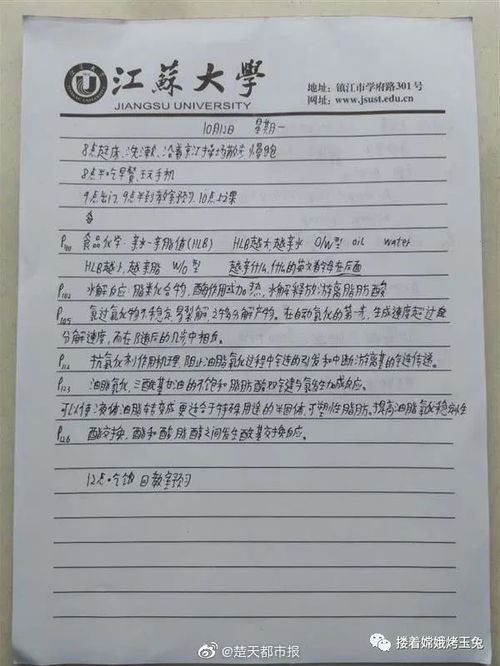 江苏大学
JIANGSU UNIVERSITY
地址: 镇江市学府路301号
网址: www.jsust.edu.cn
10月12日 星期一
8点起床、洗漱、沿着京江操场散步 慢跑
8点半吃早餐、玩手机
9点出门, 9点半到教室预习, 10点上课
食品化学: 亲水-亲脂值(HLB) HLB越大越亲水 O/W型 oil water
HLB越小, 越亲脂 W/O型 越亲什么, 什么的英文首字母在后面
P102 水解反应: 脂类化合物, 酶作用或加热, 水解释放游离脂肪酸
P105 氢过氧化物不稳定, 易裂解 分解产物。在自动氧化的第一步, 生成速度超过
分解速度, 而在随后的几步中相反。
P112 抗氧化剂作用机理, 阻止油脂氧化过程中 的引发和中断游离基的 传递。
P123 油脂氢化, 三酰基甘油的不饱和脂肪酸双键与氢发生加成反应。
可以使液体油脂转变成更适合于特殊用途的半固体, 可塑性脂肪, 提高油脂氧化稳定性
P126 酯交换, 酯和酸, 酯, 醇之间发生酰基交换反应。
12点吃饭 回教室预习
@楚天都市报
搂着嫦娥烤玉兔